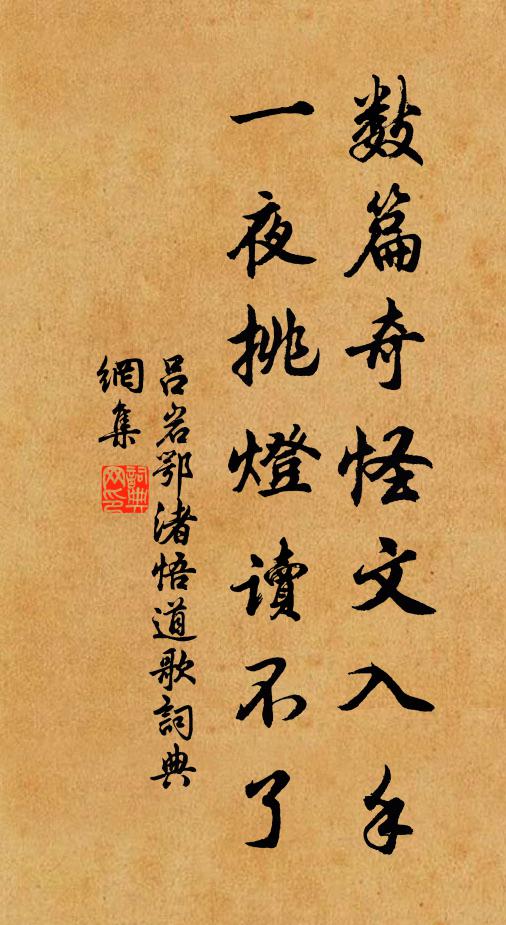 數篇奇怪文入手
一夜挑燈讀不了
呂岩鄂渚悟道歌詞典
網集
詞典
網印